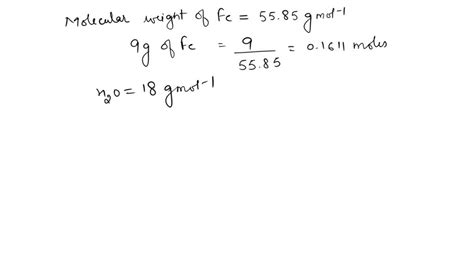 Molecular weight of Fe = 55.85 g mol⁻¹
9g of Fe = 9/55.85 = 0.1611 moles
H₂O = 18 g mol⁻¹